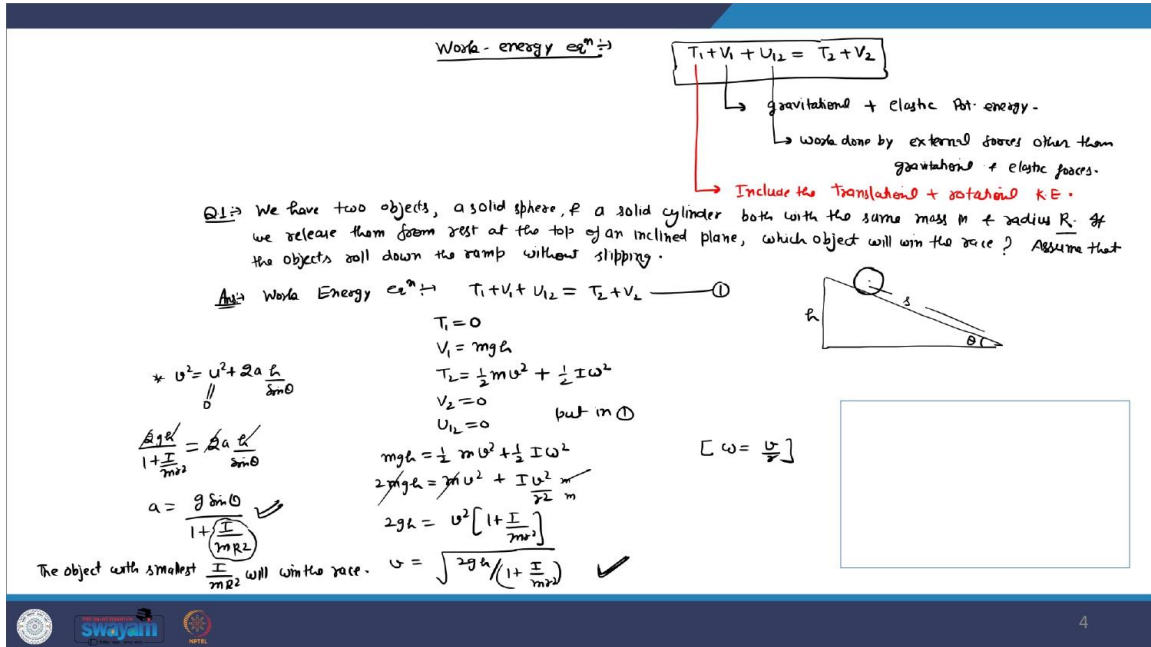 Work-energy eqⁿ :→
T₁ + V₁ + U₁₂ = T₂ + V₂
gravitational + elastic Pot. energy.
work done by external forces other them
gravitational + elastic forces.
Include the translational + rotational K.E.
Q1:→ We have two objects, a solid sphere, & a solid cylinder both with the same mass m & radius R. If
we release them from rest at the top of an inclined plane, which object will win the race? Assume that
the objects roll down the ramp without slipping.
Ans:→ Work Energy eqⁿ :→ T₁+V₁+U₁₂ = T₂+V₂ ——— ①
h
s
θ
T₁ = 0
V₁ = mgh
T₂ = ½mv² + ½Iω²
V₂ = 0
U₁₂ = 0 put in ①
mgh = ½ mv² + ½ Iω² [ω = v/r]
2mgh = mv² + I v²/r² m/m
2gh = v² [1 + I/mr²]
v = √(2gh/(1 + I/mr²))
* v² = u² + 2a h/sinθ
0
2gh/(1 + I/mr²) = 2a h/sinθ
a = g sinθ/(1 + I/mR²)
The object with smallest I/mR² will win the race.
swayam
NPTEL
4